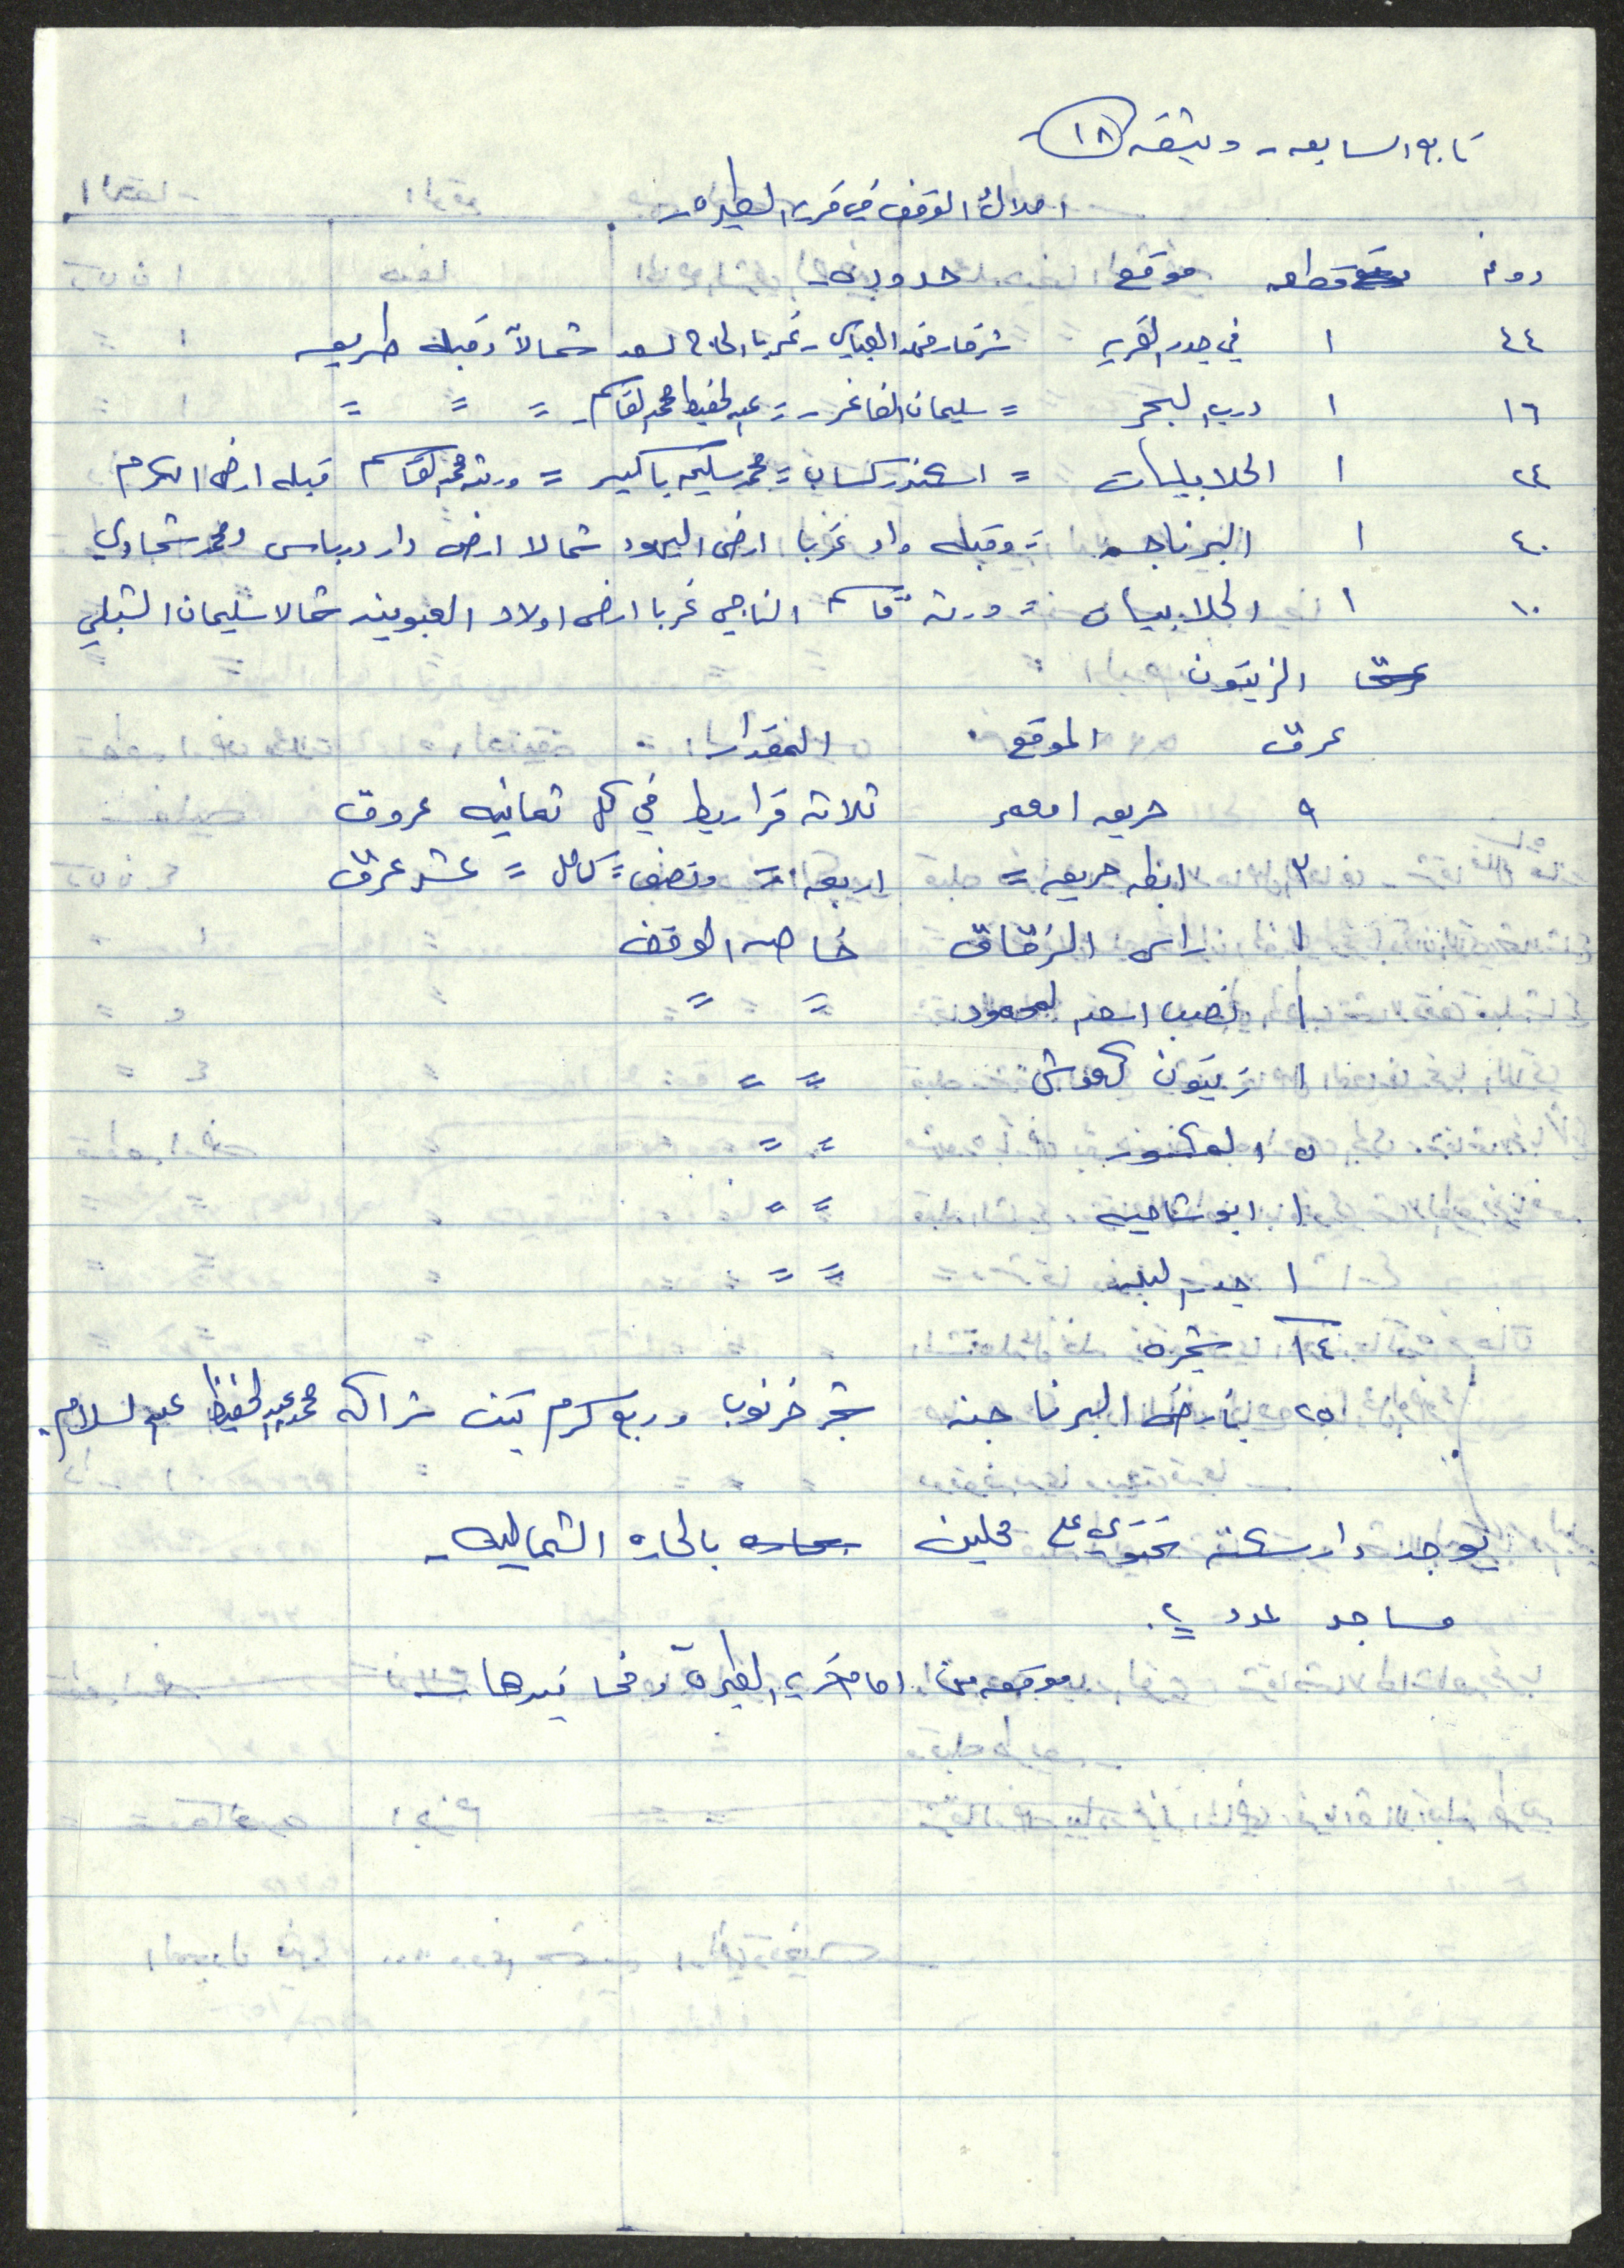 تابع السابعه - وثيقه ١٨
املاك الوقف في قرية الطيره -
دونم قطعه موقع حدوده -
٤٤ ١ في جدر القريه شرقا رفهد العباس - غربا الحاج اسعد شمالاً وقبله طريق
١٦ ١ درب البحر = سليمان الفاعر - = عبد الحفيظ محمد القاسم = = =
٢٤ ١ الحلابيات = اسكندر كساب = محمد سليم باكير = ورثة محمد القاسم قبله ارض الكرم
٤٠ ١ البرناجه = وقبله واد غربا ارض اليهود شمالا ارض دار درباس ومحمد شحادي
١٠ ١ الحلابيات = ورثة قاسم الناجي غربا ارض اولاد العبويند شمالا سليمان الشبلي
الزيتون
عرق الموقع المقدار
٩ حريقه ثلاثة قراريط في كل ثمانيه عروق
٣ ايظا حريقه = اربعه = ونصف = كامل = عشر عرق
١ راس الزقاق خاصه الوقف
١ نصيب اسعد المحمود = =
١ زيتون = =
٥ = =
١ ابو شاحيه = =
١ جدر البلد = =
١٤ شجره
٢٥ بأرض البرناجنه شجر خرنوب وربع كرم تين شراكه محمد عبد الحفيظ عبد السلام.
يوجد دار سكنه تحتوي على محلين بالحاره الشماليه -
مساجد عدد ٢.
موقعه من امام قرية الطيرة ومخاتيرها